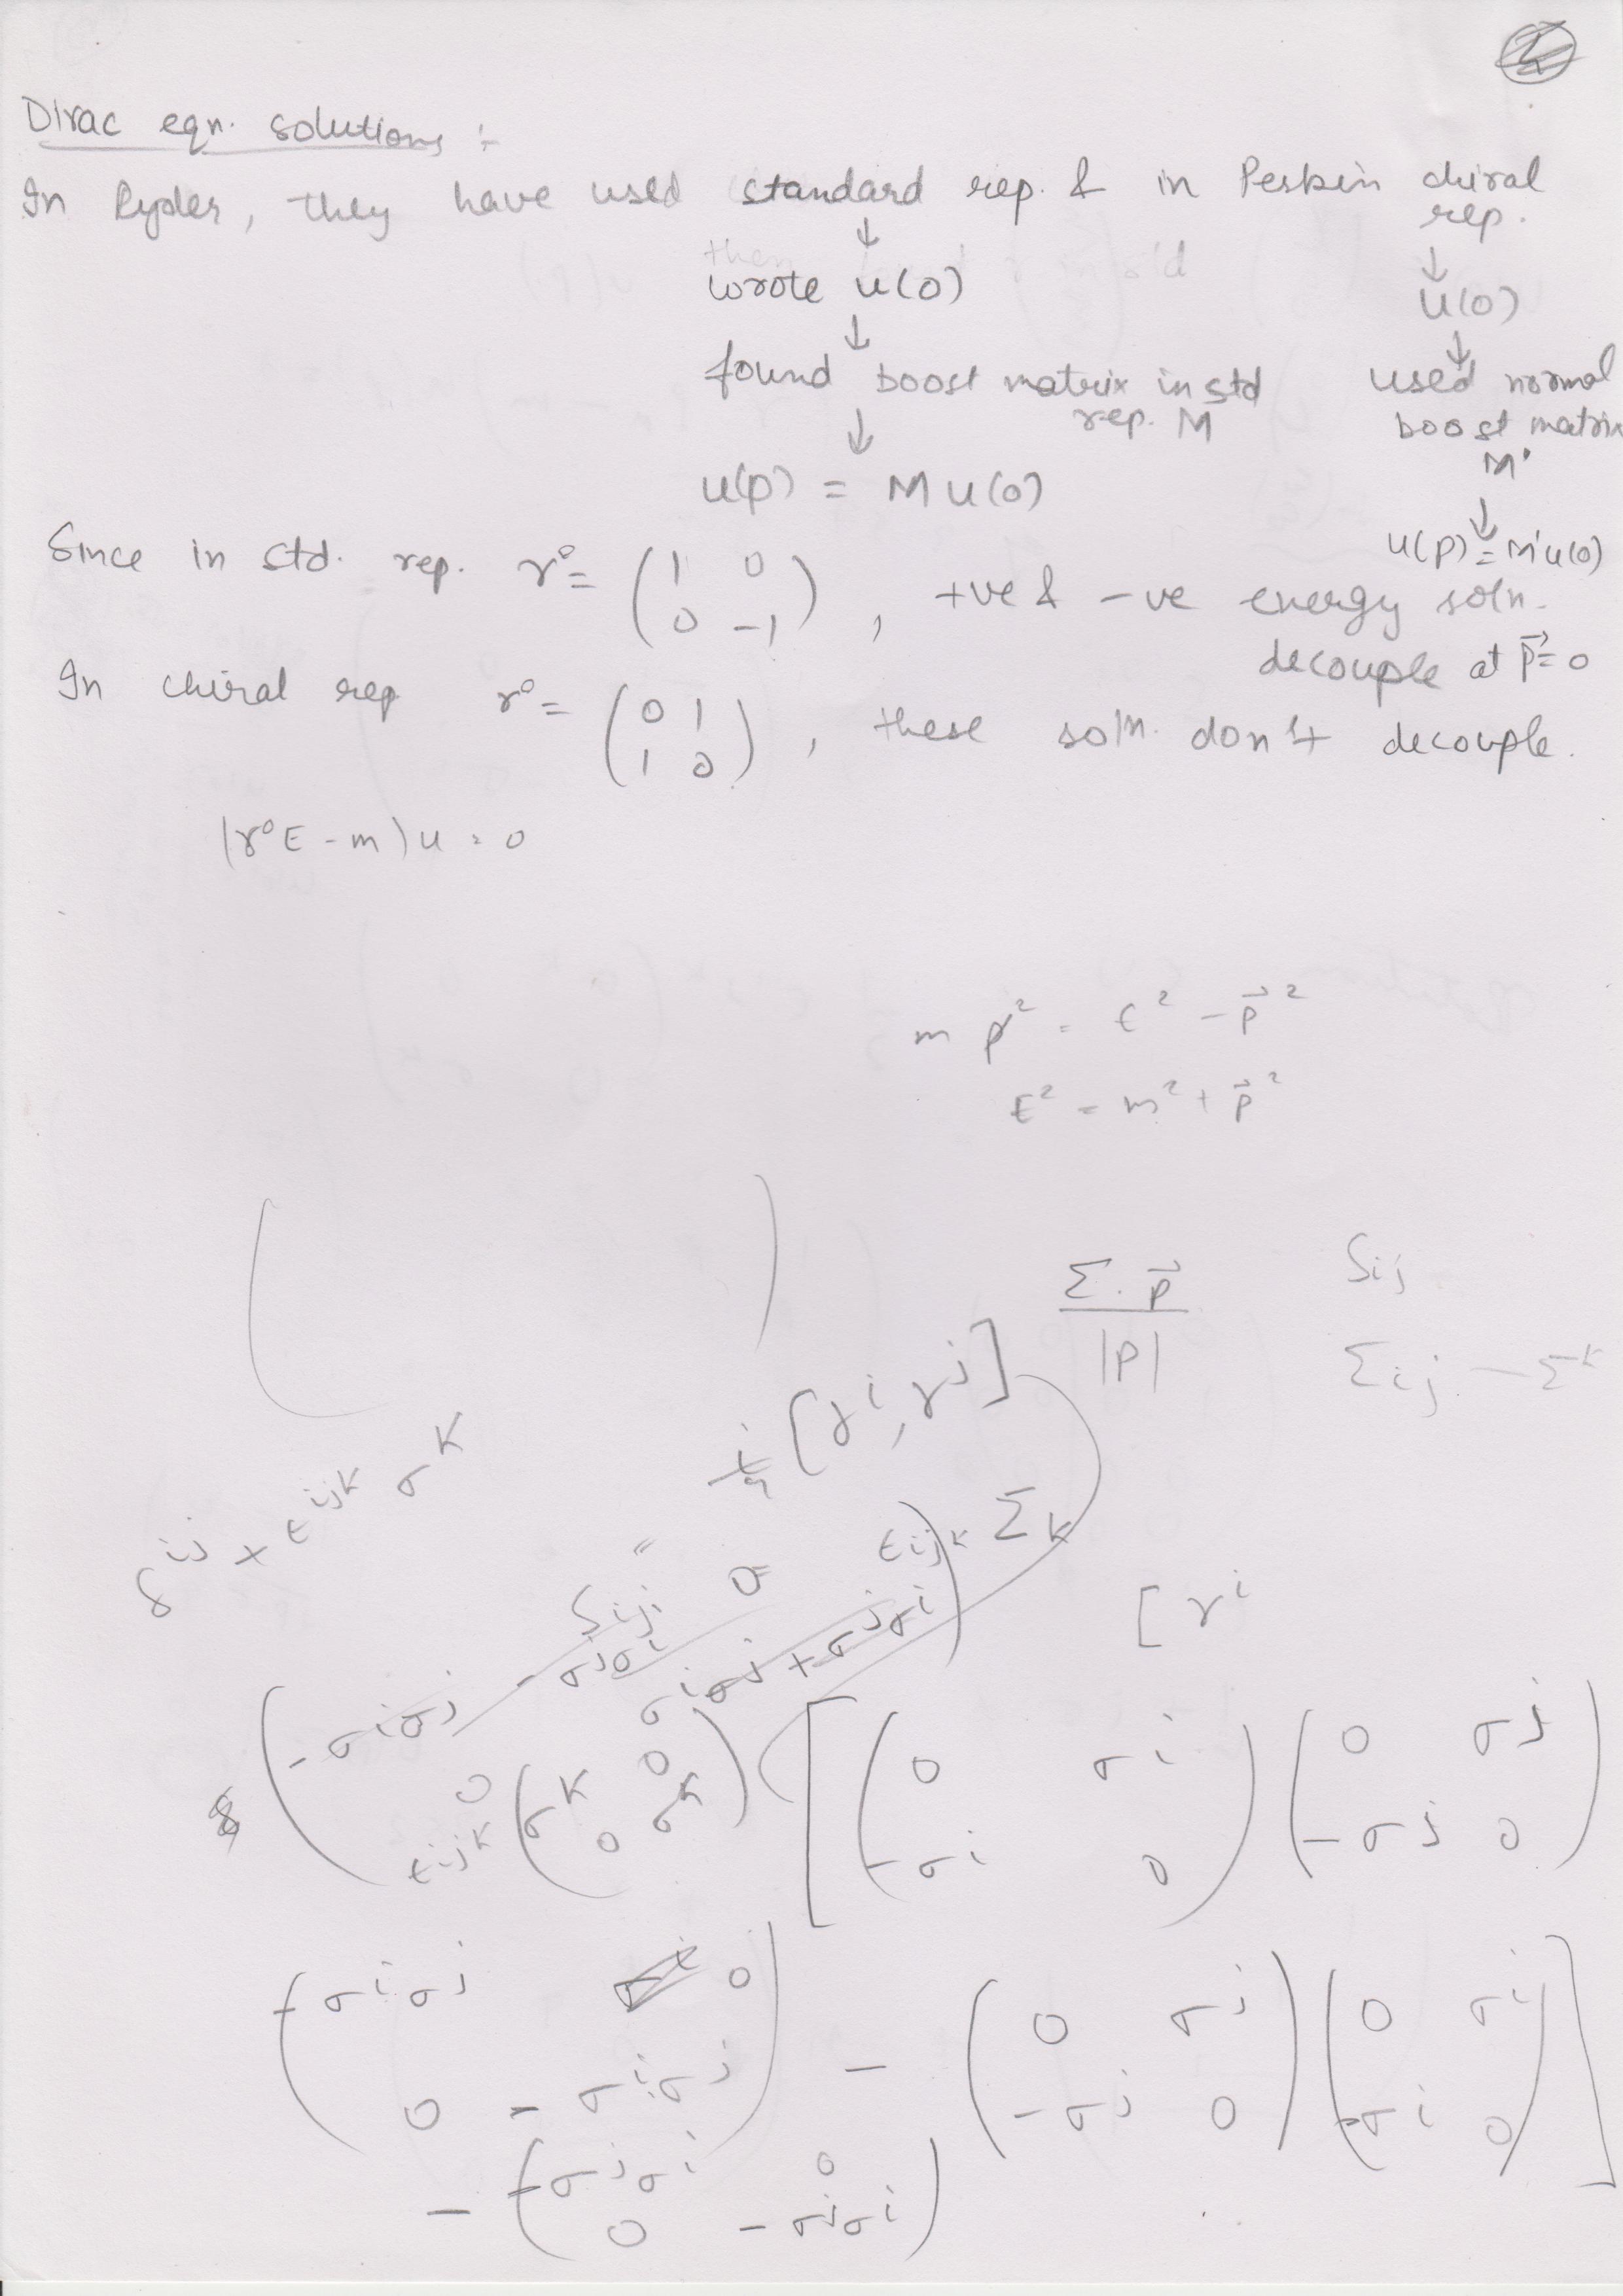 Dirac eqn. solutions :-
In Ryder, they have used standard rep. & in Peskin chiral rep.
↓ ↓
wrote u(0) u(0)
↓ ↓
found boost matrix in std rep. M used normal boost matrix M'
↓ ↓
u(p) = M u(0) u(p) = M'u(0)
Since in std. rep. γ⁰ = ( 1 0
0 -1 ) , +ve & -ve energy soln.
decouple at p⃗ = 0
In chiral rep γ⁰ = ( 0 1
1 0 ) , these soln. don't decouple.
(γ⁰E - m) u = 0
m p² = E² - p⃗²
E² = m² + p⃗²
( )
Σ.p⃗ / |p| Sij
Σij - Σᵏ
i/4 [γⁱ, γʲ]
δⁱʲ + εⁱʲᵏ σᵏ
=
Sij = εijk Σk
[γⁱ
( -σⁱσʲ - σʲσⁱ 0
0 σⁱσʲ + σʲσⁱ )
εijk ( σᵏ 0
0 σᵏ )
[ ( 0 σⁱ
-σⁱ 0 ) ( 0 σʲ
-σʲ 0 )
( -σⁱσʲ 0
0 -σⁱσʲ ) - ( 0 σʲ
-σʲ 0 ) ( 0 σⁱ
-σⁱ 0 ) ]
- ( -σʲσⁱ 0
0 -σʲσⁱ )